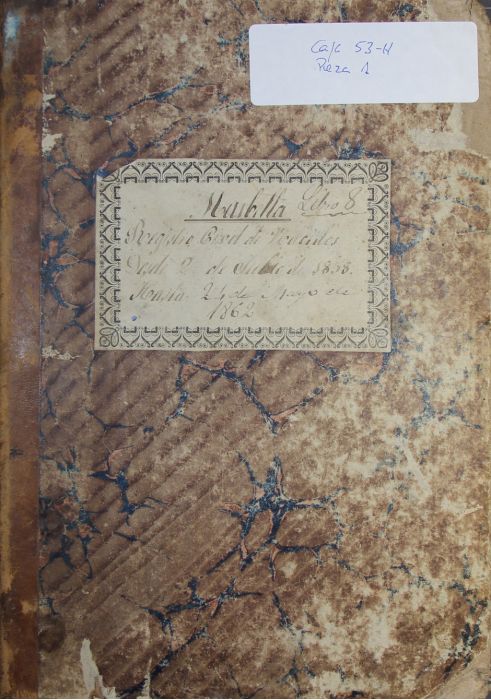 Caja 53-H
Pieza 1
Marbella Libro 8
Registro Civil de
Desde 2 de Julio de 1858.
Hasta 24 de Mayo de
1862